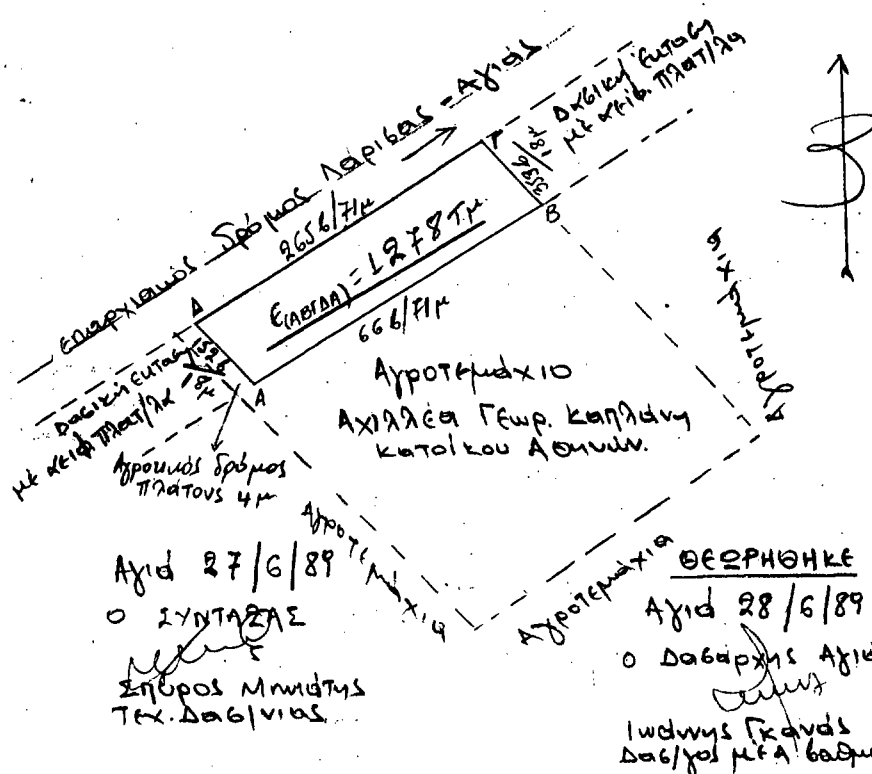 Επαρχιακός δρόμος Λάρισας - Αγιάς
Δασική έκταση
με αειφ. πλατ/λα
265β/71μ
Γ
359β/18μ
Β
Δ
Ε(ΑΒΓΔΑ) = 1278 Τμ
66β/71μ
Δασική έκταση
με αειφ. πλατ/λα
18μ
Α
Αγροτικός δρόμος
πλάτους 4μ
Αγροτεμάχιο
Αχιλλέα Γεωρ. Καπλάνη
κατοίκου Αθηνών.
Αγροτεμάχια
Αγροτεμάχια
Αγροτεμάχια
Αγιά 27/6/89
Ο ΣΥΝΤΑΞΑΣ
Σπύρος Μηνιάτης
Τεχ. Δασ/νιας
ΘΕΩΡΗΘΗΚΕ
Αγιά 28/6/89
Ο Δασάρχης Αγιά
Ιωάννης Γκανάς
Δασ/γος με Α βαθμ